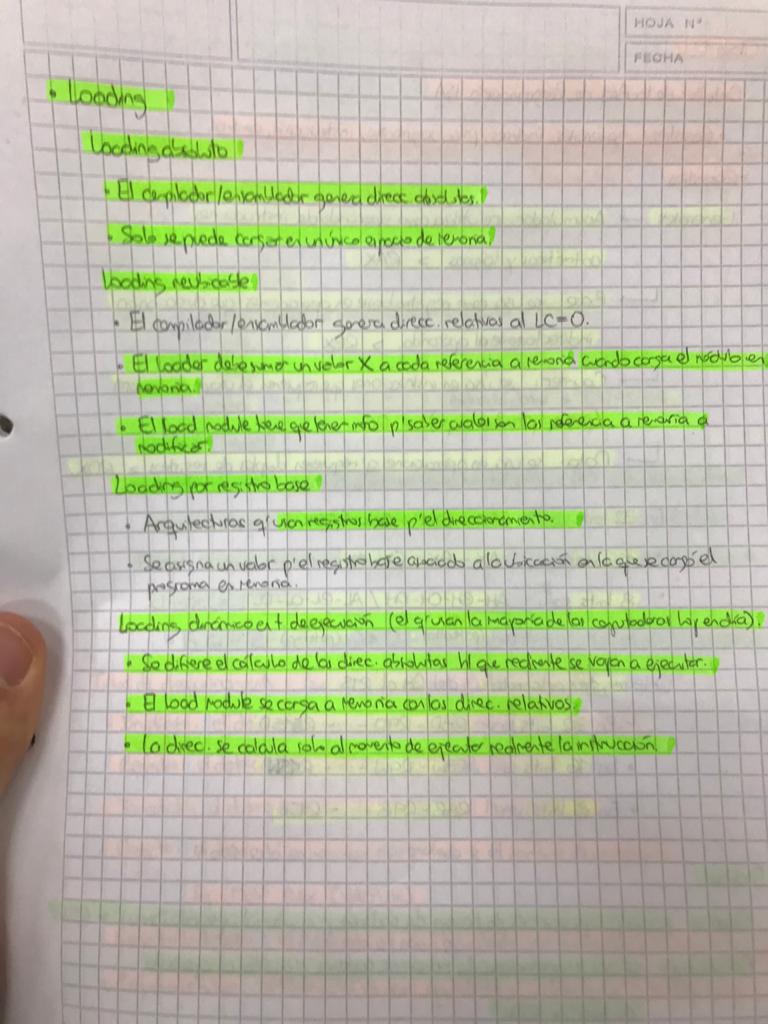 HOJA Nº
FECHA
• Loading
Loading absoluto
• El compilador/ensamblador genera direcc. absolutas.
• Solo se puede cargar en un único espacio de memoria.
Loading reubicable
• El compilador/ensamblador genera direcc. relativas al LC=0.
• El loader debe sumar un valor X a cada referencia a memoria cuando carga el módulo en
memoria.
• El load module tiene que tener info p' saber cuáles son las referencia a memoria a
modificar.
Loading por registro base
• Arquitecturas q' usan registros base p' el direccionamiento.
• Se asigna un valor p' el registro base asociado a la ubicación en la que se cargó el
programa en memoria.
Loading dinámico en t de ejecución (el q' usan la mayoría de las computadoras hoy en día).
• Se difiere el cálculo de las direc. absolutas h' que realmente se vayan a ejecutar.
• El load module se carga a memoria con las direc. relativas.
• La direc. se calcula solo al momento de ejecutar realmente la instrucción.